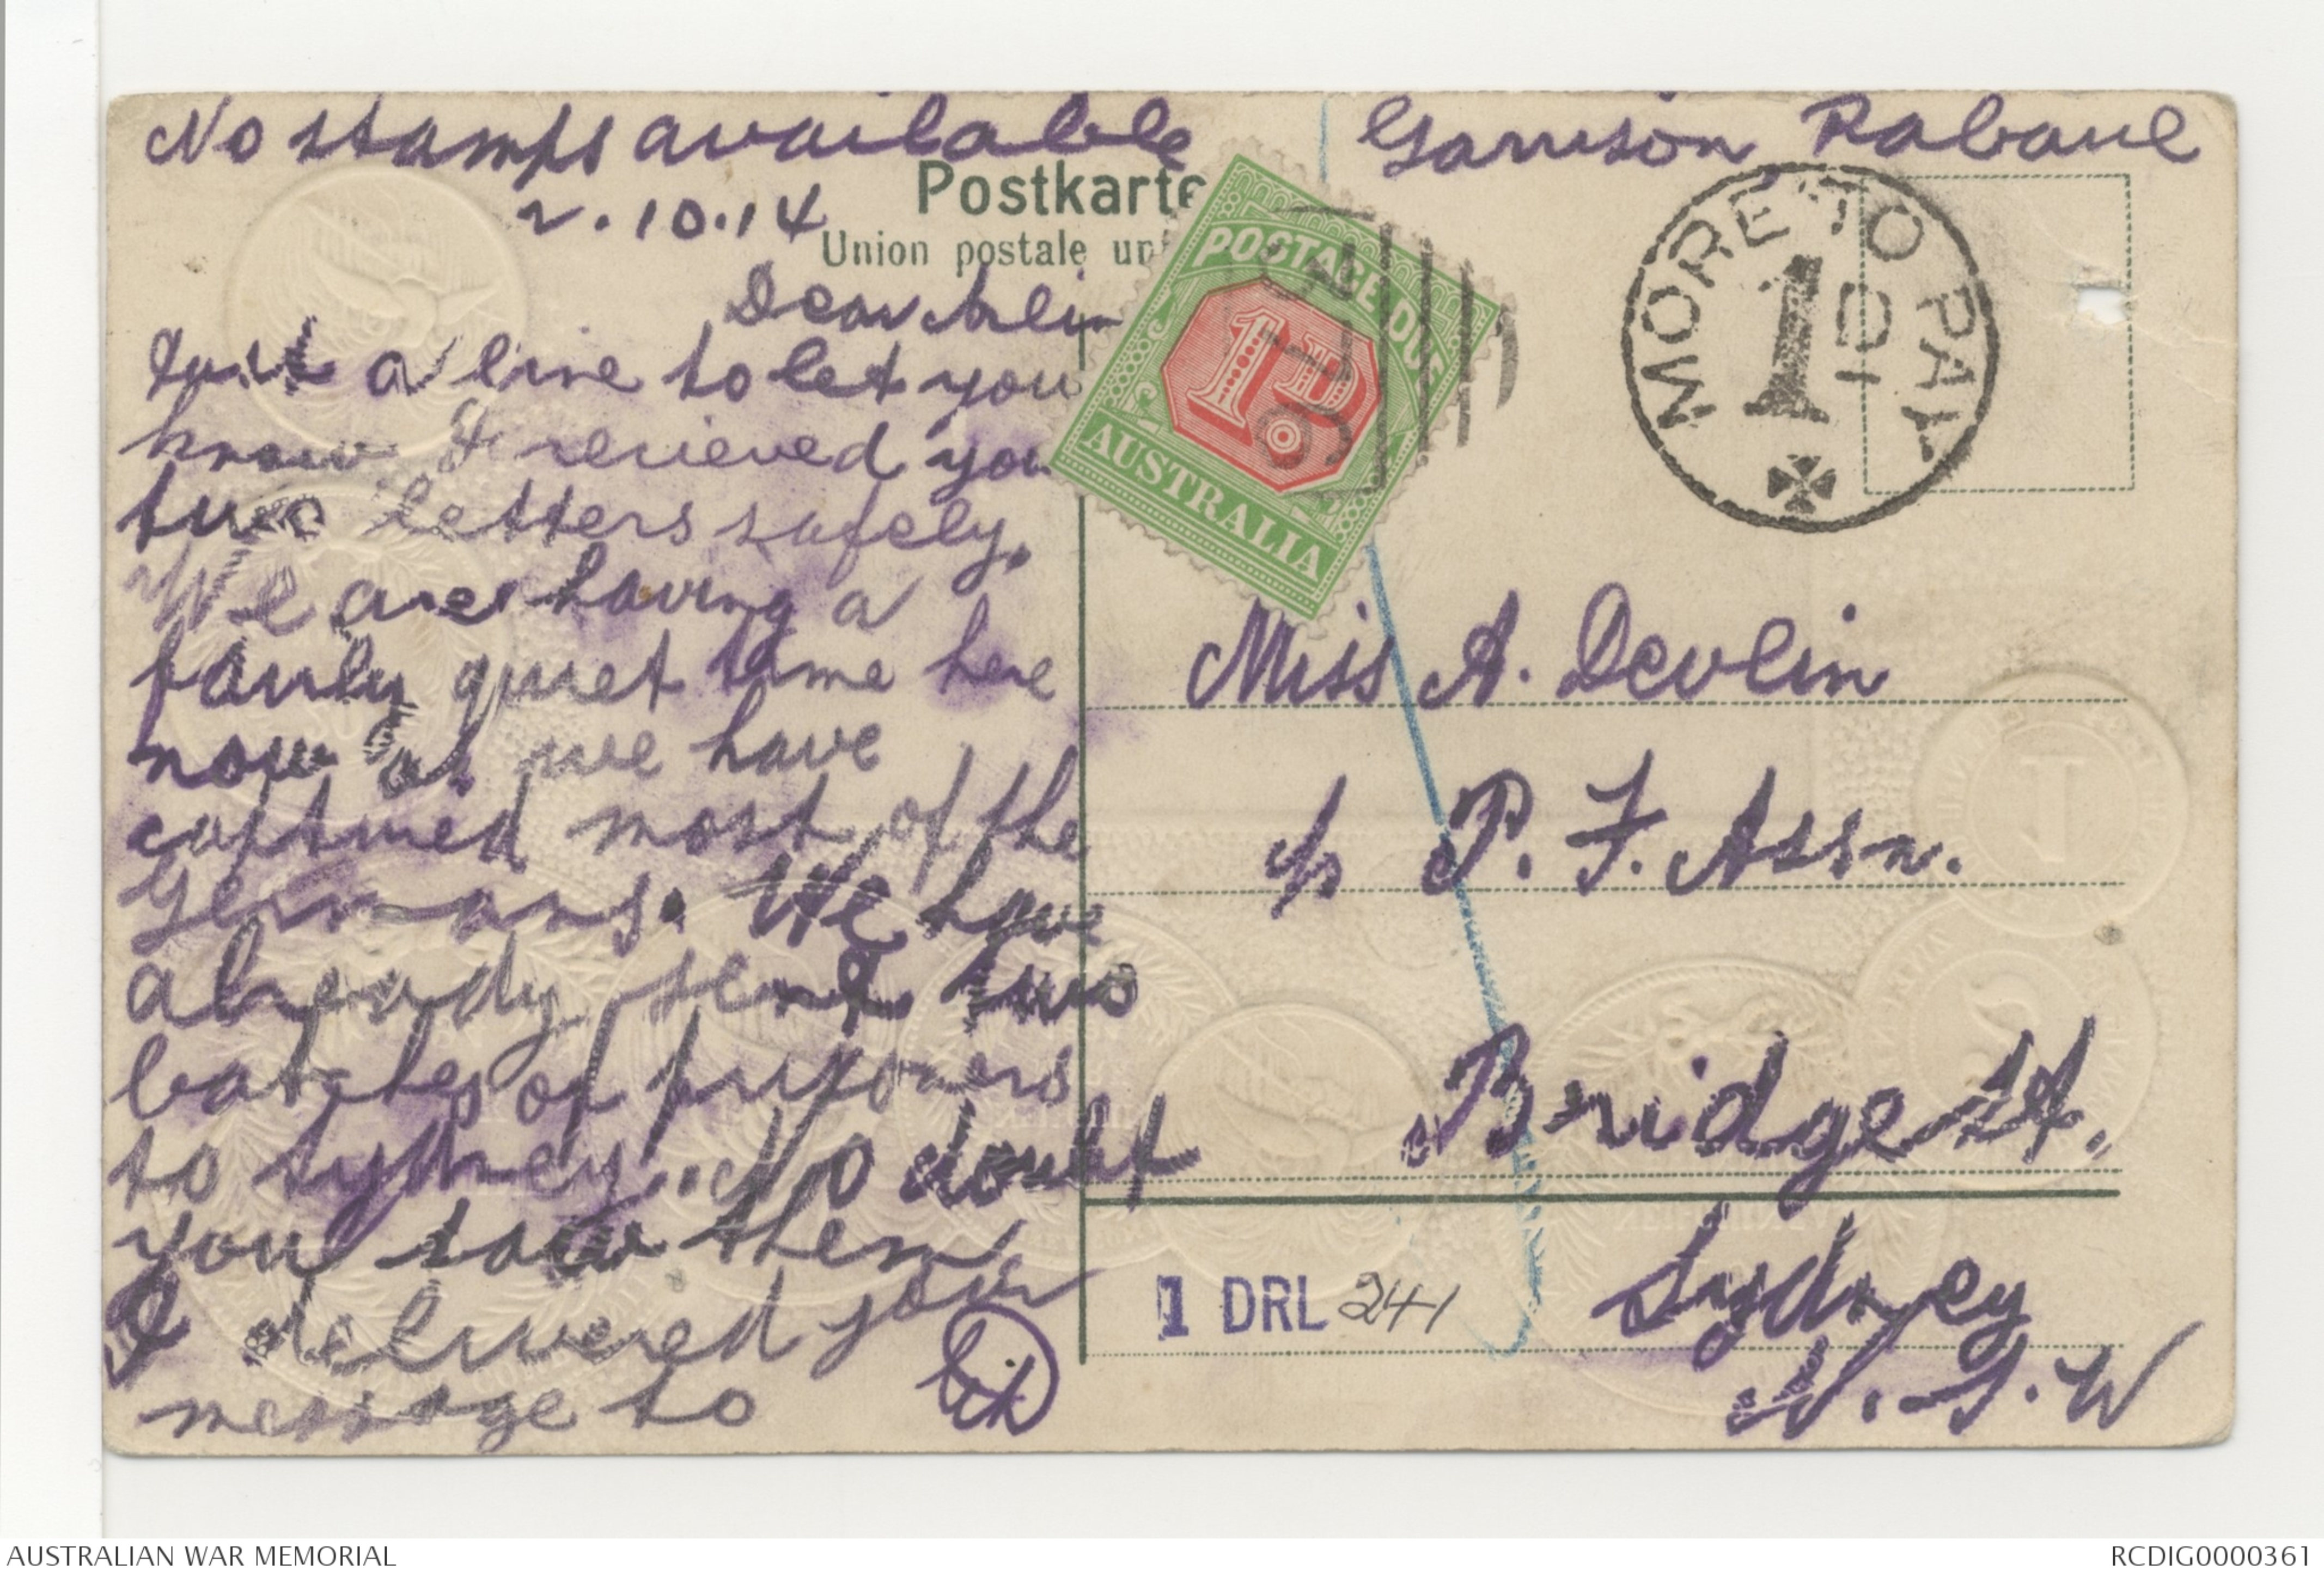 No stamps available
Garrison Rabaul
2.10.14
Postkarte
Union postale un
Dear
Just a line to let you
know I recieved you
two letters safely.
We are having a
fairly quiet time here
now as we have
captured most of the
Germans. We have
already sent two
batches of prisoners
to Sydney. No doubt
you saw them
I delivered your
message to
POSTAGE DUE
1D.
AUSTRALIA
MORE TO PAY
1D
Miss A. Devlin
P. F. Assn.
Bridge St.
Sydney
N.S.W
1 DRL 241
AUSTRALIAN WAR MEMORIAL
RCDIG0000361